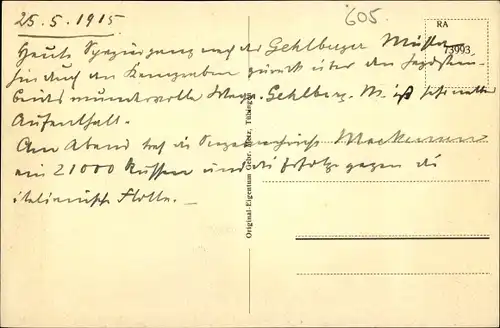 25.5.1915
605.
RA
73993
Heute Spaziergang nach der Gehlberger Mühle
hin durch den Kammgraben zurück über den
beides wundervolle Wege. Gehlberg. M. ist
Aufenthalt.
Am Abend traf die Siegesnachricht Mackensen
ein 21000 Russen und die Erfolge gegen die
italienische Flotte. —
Original-Eigentum Gebr. Metz, Tübingen